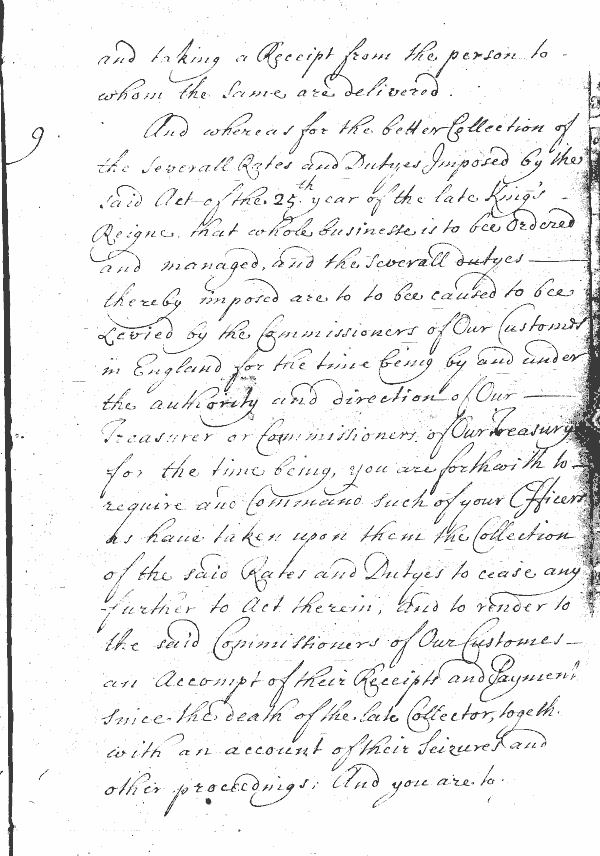 and taking a Receipt from the person to
whom the same are delivered.
9. And whereas for the better Collection of
the severall Rates and Dutyes Imposed by the
said Act of the 25th year of the late King's
Reigne, that whole businesse is to bee Ordered
and managed, and the severall dutyes
thereby imposed are to to bee caused to bee
Levied by the Commissioners of Our Customes
in England for the time being by and under
the authority and direction of Our
Treasurer or Commissioners of Our Treasury
for the time being, you are forthwith to
require and Command such of your Officers
as have taken upon them the Collection
of the said Rates and Dutyes to cease any
further to Act therein, And to render to
the said Commissioners of Our Customes
an Accompt of their Receipts and Payment
since the death of the late Collector, togeth.
with an account of their Seizures and
other proceedings; And you are to